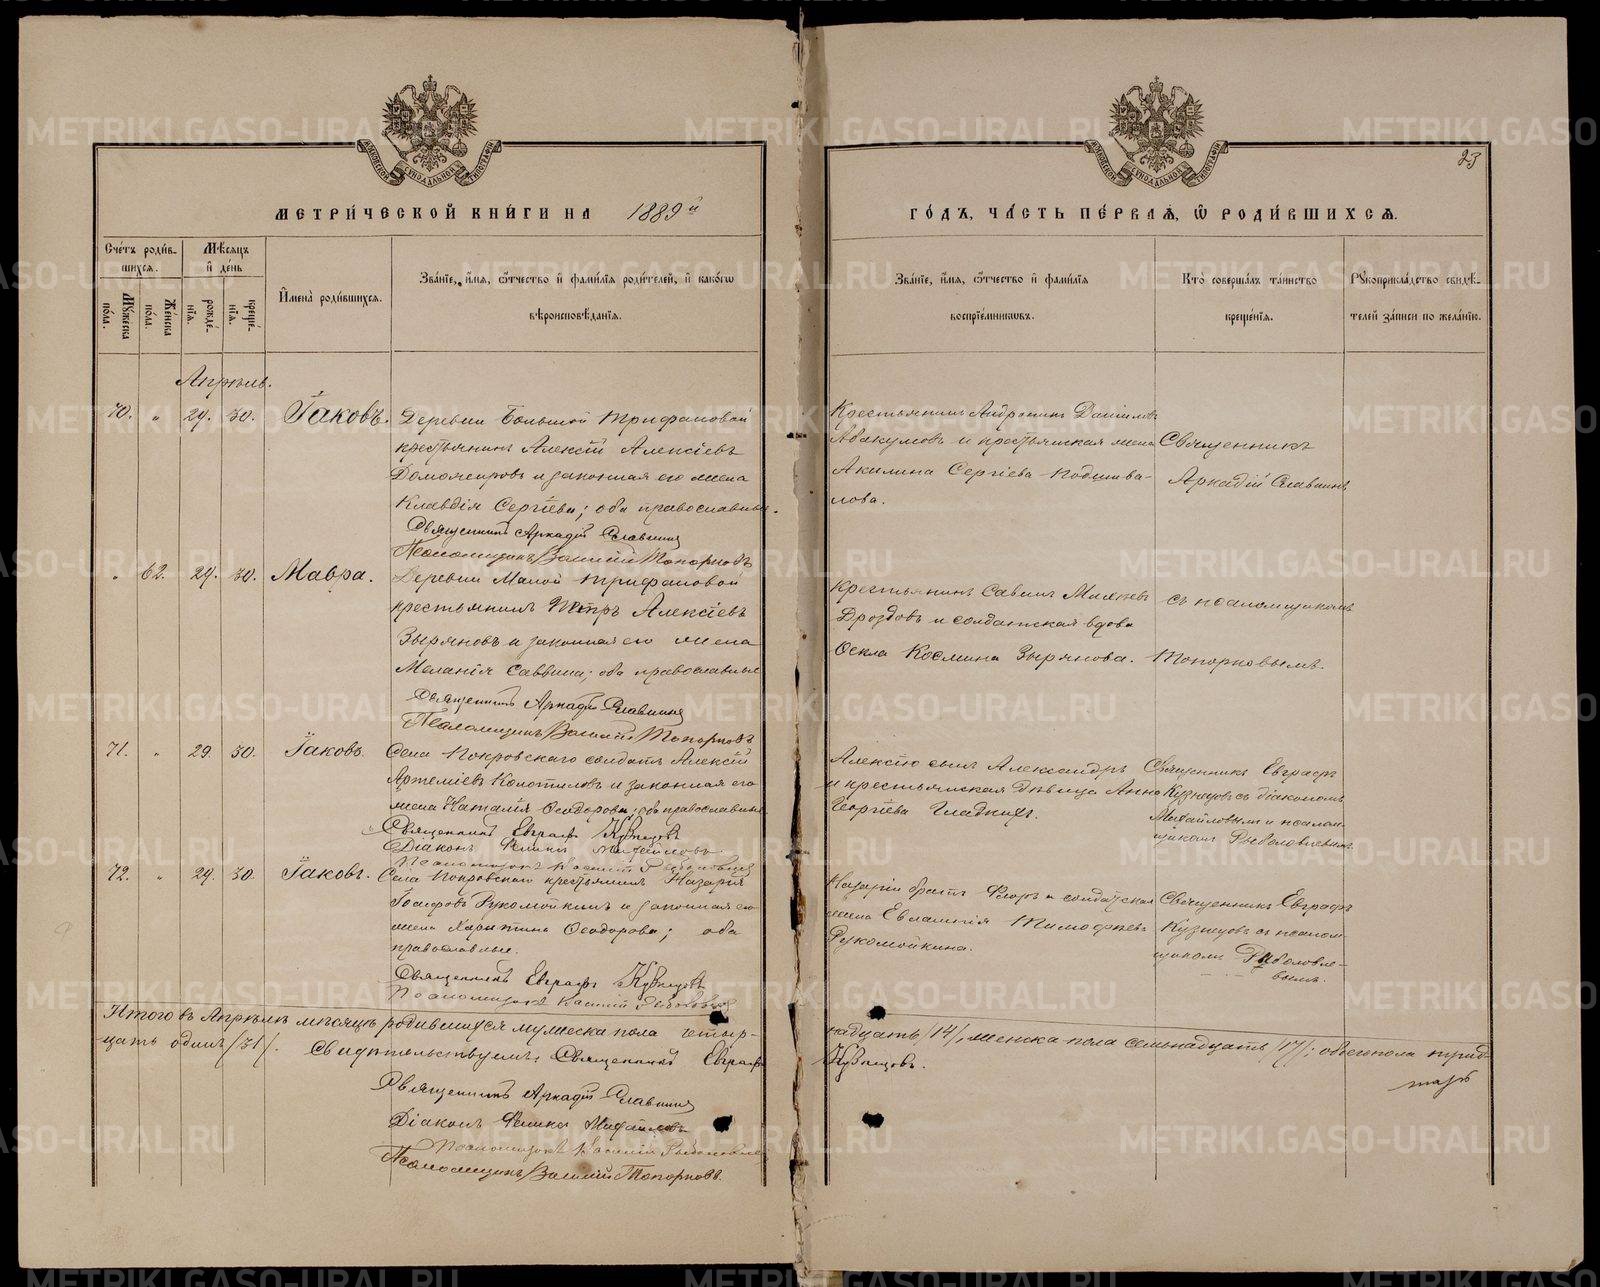 МЕТРИ́ЧЕСКОЙ КНИ́ГИ НА 1889 й
ГО́ДЪ, ЧА́СТЬ ПЕ́РВАЯ, Ѡ РОДИ́ВШИХСЯ.
23
Сче́тъ роди́в-
шихся.
Мꙋ́жеска по́ла.
Же́нска по́ла.
Мѣ́сяцъ и҆ де́нь
рожде́-нїя.
креще́-нїя.
И҆мена̀ роди́вшихся.
Зва́нїе, и҆́мя, ѻ҆́тчество и҆ фами́лїя роди́телей, и҆ како́гѡ
вѣроисповѣ́данїя.
Зва́нїе, и҆́мя, ѻ҆́тчество и҆ фами́лїя
воспрїе́мниковъ.
Кто̀ соверша́лъ та́инство
креще́нїя.
Рꙋкоприкла́дство свидѣ́-
телей за́писи по жела́нїю.
Апрѣль.
70. " 29. 30. Іаковъ.
Деревни Большой Трифановой
крестьянинъ Алексій Алексіевъ
Доможировъ и законная его жена
Клавдія Сергіева; оба православные.
Священникъ Аркадій Славнинъ
Псаломщикъ Василій Топорковъ
Крестьянинъ Андроникъ Даніиловъ
Абакумовъ и крестьянская жена
Акилина Сергіева Подшива-
лова.
Священникъ
Аркадій Славнинъ
" 62. 29. 30. Мавра.
Деревни Малой Трифановой
крестьянинъ Петръ Алексіевъ
Зыряновъ и законная его жена
Меланія Саввина; оба православные
Священникъ Аркадій Славнинъ
Псаломщикъ Василій Топорковъ
Крестьянинъ Саввинъ
Дроздовъ и солдатская вдова
Ѳекла Космина Зырянова.
съ псаломщикомъ
Топорковымъ.
71. " 29. 30. Іаковъ.
Села Покровскаго солдатъ Алексій
Артеміевъ Колотиловъ и законная его
жена Наталія Ѳеодорова; оба православные
Священникъ Евграфъ Кузнецовъ
Діаконъ Михайловъ
Псаломщикъ Василій
Алексію сынъ Александръ
и крестьянская дѣвица Анна
Георгіева Гладкихъ.
Священникъ Евграфъ
Кузнецовъ съ діакономъ
Михайловымъ и псалом-
щикомъ Рыболовлевымъ
72. " 29. 30. Іаковъ.
Села Покровскаго крестьянинъ Назарій
Іосифовъ Рукомойкинъ и законная его
жена Харитина Ѳеодорова; оба
православные.
Священникъ Евграфъ Кузнецовъ
Псаломщикъ Василій
Назарію братъ Флоръ и солдатская
жена Евлампія Тимофеева
Рукомойкина.
Священникъ Евграфъ
Кузнецовъ съ псалом-
щикомъ Рыболовле-
вымъ.
Итого въ Апрѣлѣ мѣсяцѣ родившихся мужеска пола четыр-
надцать /14/, женска пола семьнадцать /17/; обоего пола трид-
цать одинъ /31/. Свидѣтельствуемъ: Священникъ Евграфъ
Кузнецовъ.
Священникъ Аркадій Славнинъ
Діаконъ Михайловъ
Псаломщикъ Василій
Псаломщикъ Василій Топорковъ.
METRIKI.GASO-URAL.RU